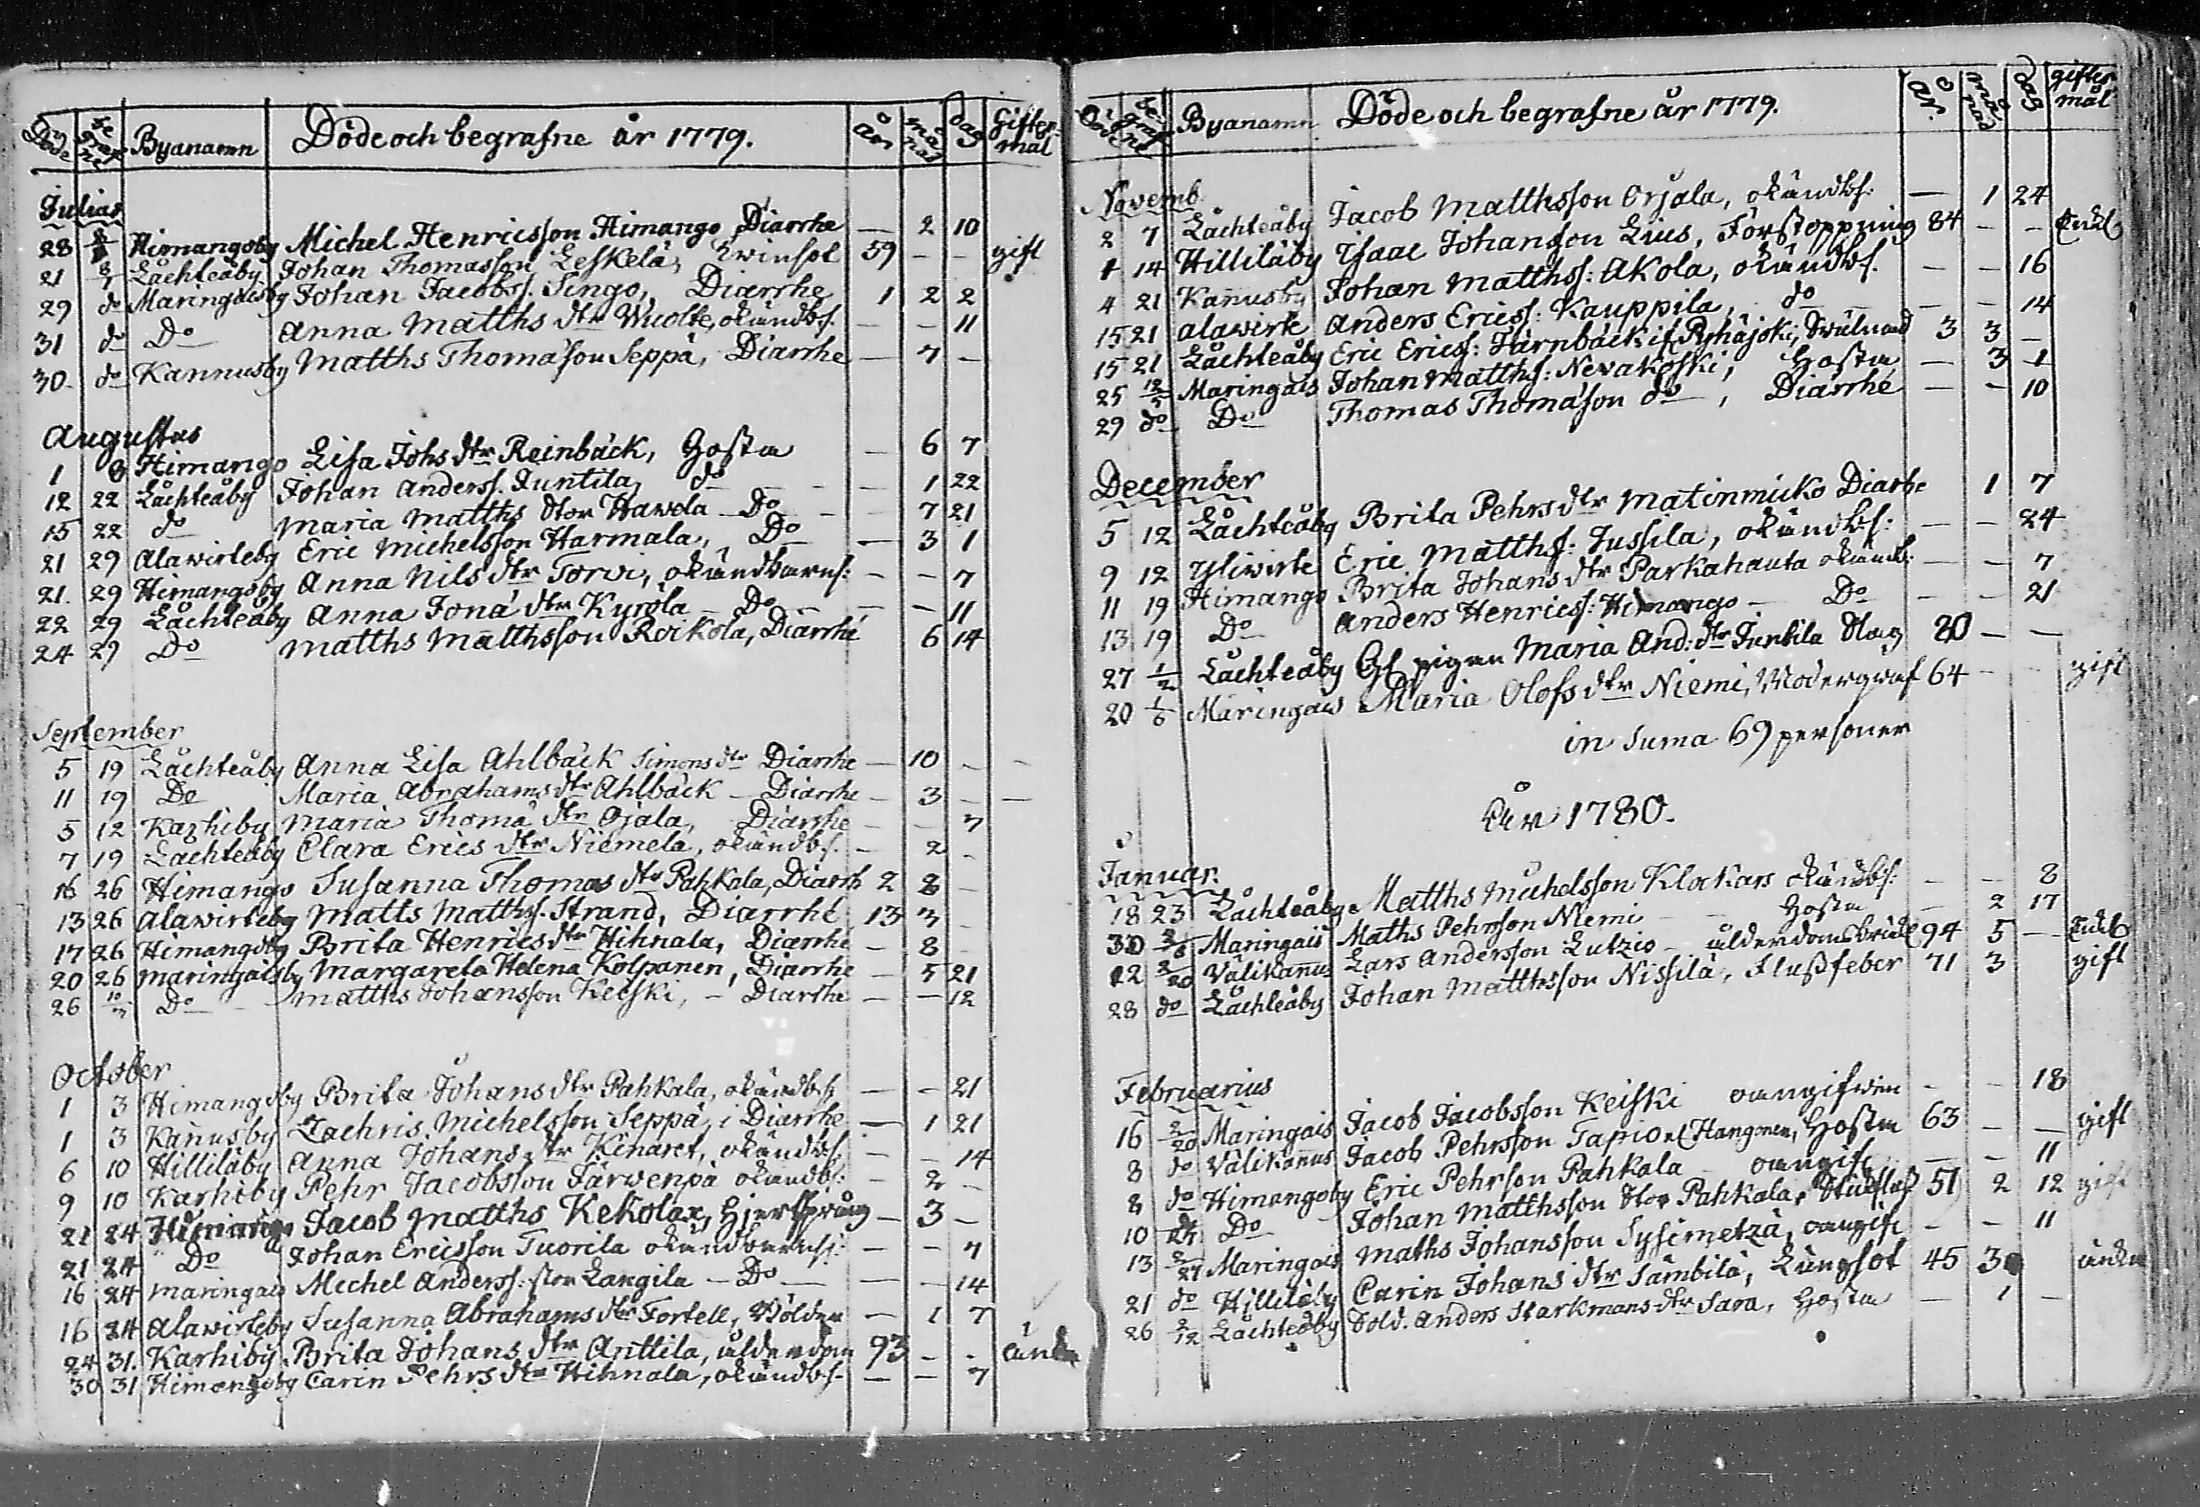 Döde be grafne Byanamn Döde och begrafne år 1779. år må nad dag Gifter mål
Julius
28 8/1 Himangoby Michel Henricsson Himango Diarrhe — 2 10
21 8/1 Låchteåby Johan Thomasson Leskelä, Twinsot 59 — — gift
29 do Maringaisby Johan Jacobss. Singo, Diarrhe 1 2 2
31 do Do Anna Matths dtr Wuolte, okändbs. — — 11
30 do Kannusby Matths Thomasson Seppä, Diarrhe — 7 —
Augustus
1 8 Himango Lisa Johs dtr Reinbäck, Hosta — 6 7
12 22 Låchteåby Johan Anderss. Juntila, do — 1 22
15 22 do Maria Matths dtor Hawela Do — 7 21
21 29 Alawirteby Eric Michelsson Harmala, Do — 3 1
21. 29 Himangoby Anna Nils dtr Torvi, okändbarns: — — 7
22 29 Låchteåby Anna Jona dtr Kyrölä Do — — 11
24 29 Do Matths Matthsson Roikola, Diarrhé 6 14
September
5 19 Låchteåby Anna Lisa Ahlbäck Simons dtr Diarrhe — 10 — —
11 19 Do Maria Abrahams dtr Ahlbäck — Diarrhe — 3 — —
5 12 Karhiby Maria Thoma dtr Ojala, Diarrhe — — 7
7 19 Lachteåby Clara Erics dtr Niemelä, okändbs. — 2 —
16 26 Himango Susanna Thomas dtr Pahkala, Diarrh 2 8 —
13 26 Alawirteby Matts Matthss. Strand, Diarrhé 13 3 —
17 26 Himangoby Brita Henrics dtr Hihnala, Diarrhé — 8 —
20 26 Maringaisby Margareta Helena Kolpanen, Diarrhe — 5 21
26 10/3 Do Matths Johansson Keiski, — Diarrhe — — 12
October
1 3 Himangoby Brita Johans dtr Pahkala, okändbs — — 21
1 3 Kañusby Zachris Michelsson Seppä, i Diarrhe — 1 21
6 10 Hilliläby Anna Johans dtr Kinaret, okändbs. — — 14
9 10 Karhiby Pehr Jacobsson Järwenpä okändbs: — 2 —
21 24 Himango Jacob Matths Kekolax, — 3 —
21 24 Do Johan Ericsson Tuorila okändbarns: — — 7
16 24 Maringais Michel Anderss: ston Langila — Do — — — 14
16 24 Alawirteby Susanna Abrahams dtr Fortell, Bölder — 1 7
24 31. Karhiby Brita Johans dtr Anttila, ålderdom 93 — — änka
30 31 Himangoby Carin Pehrs dtr Hihnala, okändbs. — — 7
Döde be graf ne Byanamn Döde och begrafne år 1779. år. må nad dag gifter mål
Novemb.
2 7 Låchteåby Jacob Matthsson Orjala, okändbs: — 1 24
1 14 Hilliläby Isaac Johansson Lius, Förstoppning 84 — — Enkl
4 21 Kañusby Johan Matthss: Akola, okändbs. — — 16
15 21 Alawirte Anders Ericss: Kauppila, do — — 14
15 21 Låchteåby Eric Ericss: Färnbäck if. Pyhäjoki, 3 3 —
25 12/5 Maringais Johan Matthss: Nevakoski, Hosta — 3 1
29 do Do Thomas Thomasson do, Diarrhé — — 10
December
5 12 Låchteåby Brita Pehrs dtr Matinmicko Diarhe 1 7
9 12 Yliwirte Eric Matthss: Jussila, okändbs: — — 24
11 19 Himango Brita Johans dtr Parkahauta okändb. — — 7
13 19 Do Anders Henricss: Himango — Do — — 21
27 1/2 Låchteåby Gl pigan Maria And: dtr Juntila Slag 20 — —
20 1/6 Maringais Maria Olofs dtr Niemi, 64 — — gift
in Suma 69 personer
År 1780.
Januar.
18 23 Låchteåby Matths Michelsson Klockars okändbs: — — 8
30 2/6 Maringais Maths Pehrsson Niemi — Hosta — 2 17
12 2/20 Välikañus Lars Andersson Lutzio — ålderdomsbräck 94 5 — Enkl
28 do Låchteåby Johan Matthsson Nissilä, Flussfeber 71 3 gift
Februarius
16 2/20 Maringais Jacob Jacobsson Keiski oangifwin — — 18
8 do Välikañus Jacob Pehrsson Tapio el Hangonen, Hosta 63 — — gift
8 do Himangoby Eric Pehrsson Pahkala oangif. — — 11
10 Do Johan Matthsson Stor Pahkala, 51 2 12 gift
13 2/27 Maringais Maths Johansson Sysimetzä, oangif. — — 11
21 do Hilliläby Carin Johans dtr Särnbilä, Lungsot 45 3 änka
26 2/12 Låchteåby Sold. Anders Starkmans dtr Sara, Hosta — 1 —